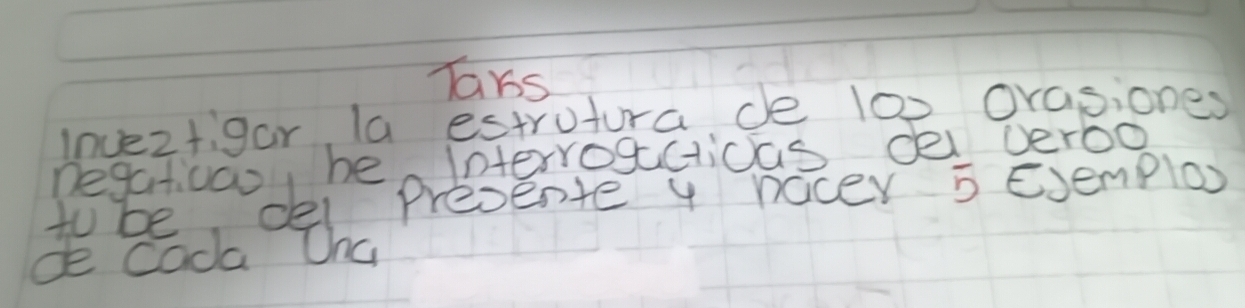 Tars
inveztigar la estrutura de los orasiones
negativas, he interrogativas del verbo
to be del presente y hacer 5 Ejemplos
de cada una